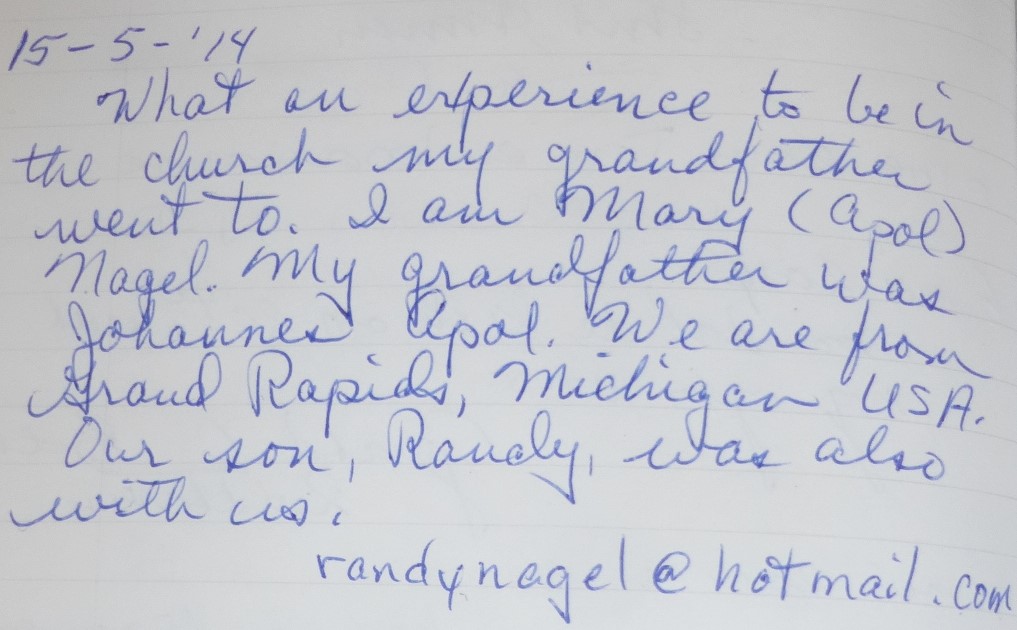 15-5-'14
What an experience to be in
the church my grandfather
went to. I am Mary (Apol)
Nagel. My grandfather was
Johannes Apol. We are from
Grand Rapids, Michigan USA.
Our son, Randy, was also
with us.
randynagel@hotmail.com